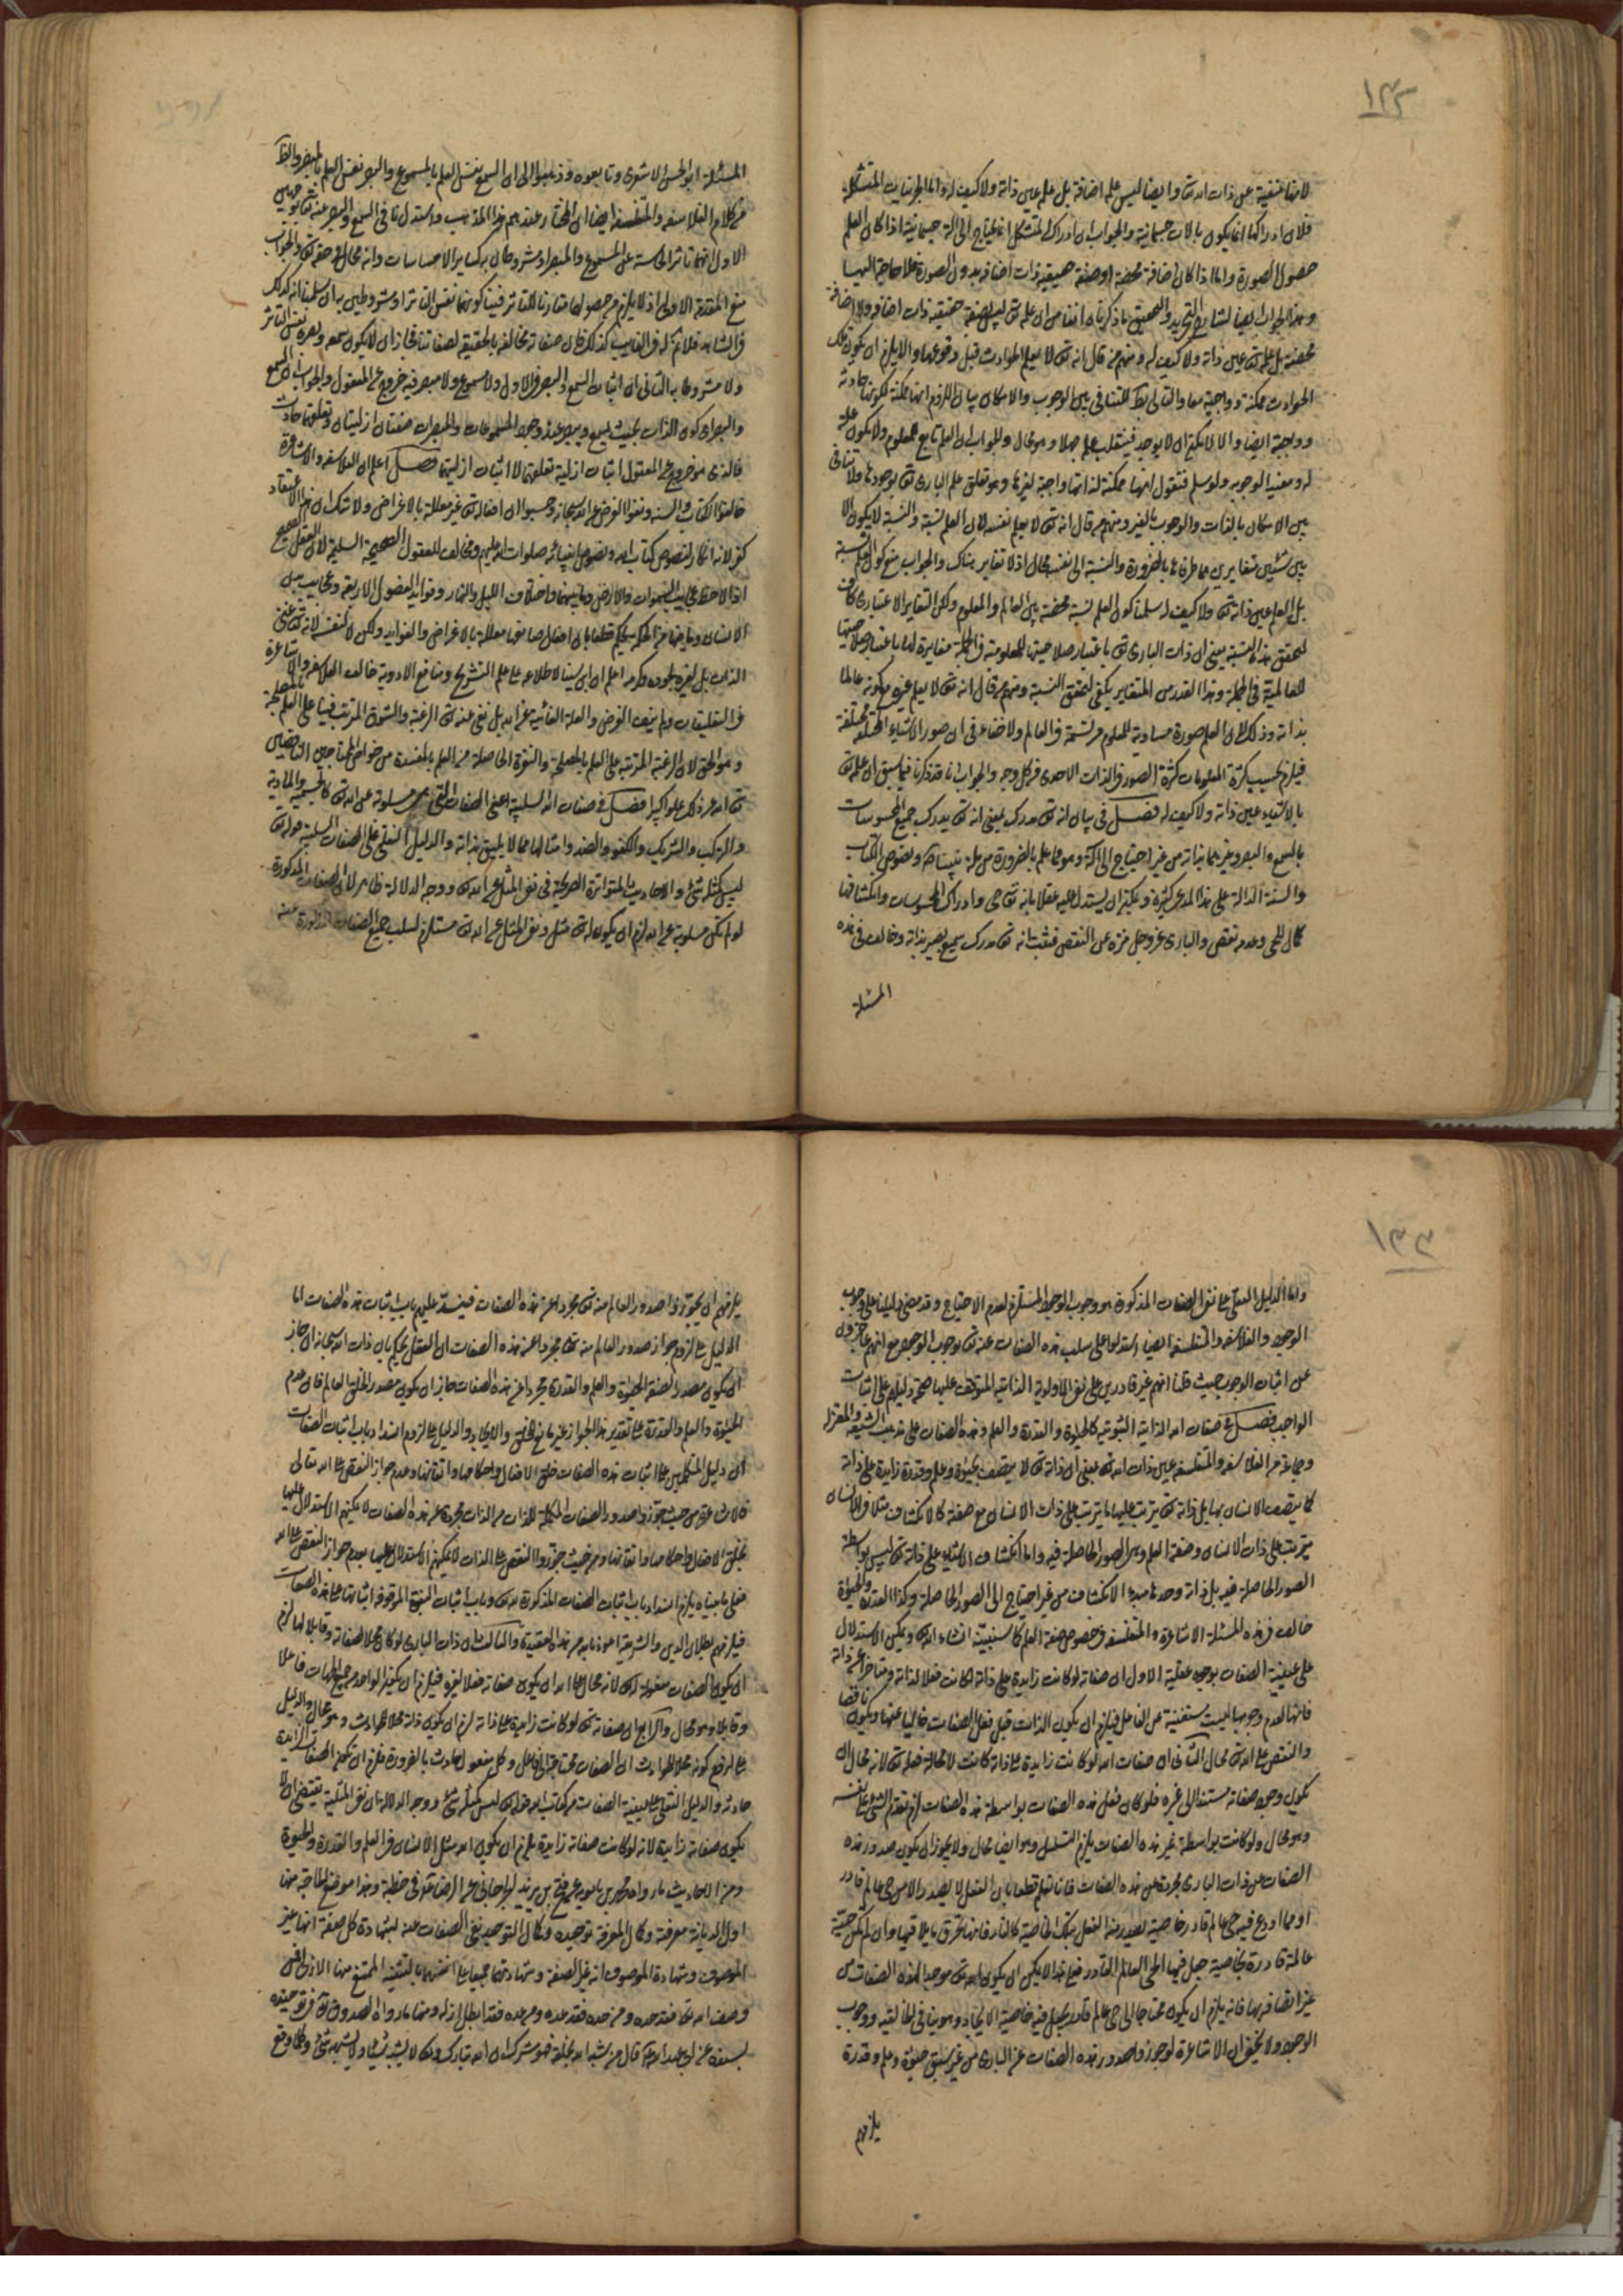 ١٣٢
لانها منفية عن ذات الله تعا وايضا ليس علمه اضافة بل علمه عين ذاته ولا كيف له واما الجزئيات المتشكلة
فلان ادراكها انما يكون بالات جسمانية والجواب ان ادراك المتشكل انما يحتاج الى الة جسمانية اذا كان العلم
حصول الصورة واما اذا كان اضافة محضة او صفة حقيقية ذات اضافة بدون الصورة فلا حاجة اليها
وهذا الجواب ايضا لشارح التجريد والتحقيق ما ذكرناه انفا من ان علمه تعالى ليس صفة حقيقية ذات اضافة ولا اضافة
محضة بل علمه تعالى عين ذاته ولا كيف له ومنهم من قال انه تعالى لا يعلم الحوادث قبل وقوعها والا يلزم ان يكون تلك
الحوادث ممكنة وواجبة معا والتالي بط للتنافي بين الوجوب والامكان بيان اللزوم انها ممكنة لكونها حادثة
وواجبة ايضا والا لامكن ان لا يوجد فينقلب علمه جهلا وهو محال والجواب ان العلم تابع للمعلوم ولا يكون علة
له ومفيد الوجوبه ولو سلم فنقول انها ممكنة لذاتها واجبة لغيرها وهو تعلق علم الباري تعالى بوجودها ولا تنافي
بين الامكان بالذات والوجوب بالغير ومنهم من قال انه تعالى لا يعلم نفسه لان العلم نسبة والنسبة لا يكون الا
بين شيئين متغايرين هما طرفاها بالضرورة والنسبة الى نفسه محال اذ لا تغاير هناك والجواب منع كون العلم نسبة
بل العلم عين ذاته تعالى ولا كيف له سلمنا كون العلم نسبة محضة بين العالم والمعلوم ولكن التغاير الاعتباري كاف
لتحقق هذه النسبة يعني ان ذات الباري تعالى باعتبار صلاحيتها للمعلومية في الجملة مغايرة لها باعتبار صلاحيتها
للعالمية في الجملة وهذا القدر من التغاير يكفي لتحقق النسبة ومنهم من قال انه تعالى لا يعلم غيره مع كونه عالما
بذاته وذلك لان العلم صورة مساوية للمعلوم مرتسمة في العالم ولا خفاء في ان صور الاشياء المختلفة مختلفة
فيلزم بحسب كثرة المعلومات كثرة الصور في الذات الاحدي من كل وجه والجواب انا قد ذكرنا فيما سبق ان علمه تعالى
بالاشياء عين ذاته ولا كيف له فصل في بيان انه تعالى مدرك يعني انه تعالى يدرك جميع المحسوسات
بالسمع والبصر وغيرهما بذاته من غير احتياج الى الة وهو مما علم بالضرورة من ملة نبينا ص ونصوص الكتاب
والسنة الدالة على هذا المدعى كثيرة ويمكن ان يستدل عليه عقلا بانه تعالى حي وادراك المحسوسات وانكشافها
كمال للحي وعدمه نقص والباري عز وجل منزه عن النقص فثبت انه تعالى مدرك سميع بصير بذاته وخالف في هذه
المسئلة
المسئلة ابو الحسن الاشعري وتابعوه وذهبوا الى ان السمع نفس العلم بالمسموع والبصر نفس العلم بالمبصر والظ
من كلام الفلاسفة والمتفلسفة ايضا ان المختار عندهم هذا المذهب واستدل نافي السمع والبصر عنه تعالى بوجهين
الاول انهما تاثر الحاسة عن المسموع والمبصر او مشروطان به كساير الاحساسات وانه محال في حقه تعالى والجواب
منع المقدمة الاولى اذ لا يلزم من حصولهما مقارنا للتاثر فينا كونهما نفس التاثر او مشروطين به ان سلمنا انه كذلك
في الشاهد فلا نم انه في الغايب كذلك فان صفاته مخالفة بالحقيقة لصفاتنا فجاز ان لا يكون سمعه وبصره نفس التاثر
ولا مشروطا به الثاني ان اثبات السمع والبصر في الازل ولا مسموع ولا مبصر فيه خروج عن المعقول والجواب ان السمع
والبصر اي كون الذات بحيث يسمع ويبصر عند وجود المسموعات والمبصرات صفتان ازليتان وتعلقهما حادث
فالذي هو خروج عن المعقول اثبات ازلية تعلقهما لا اثبات ازليتهما فصل اعلم ان الفلاسفة والاشاعرة
خالفوا الكتاب والسنة ونفوا الغرض عن الله سبحانه وحسبوا ان افعاله تعالى غير معللة بالاغراض ولا شك ان هذا الاعتقاد
كفر لانه انكار لنصوص كتاب الله ونصوص انبيائه صلوات الله عليهم ومخالف للعقول الصحيحة السليمة لان العقل الصحيح
اذا لاحظ عجايب السموات والارض وما بينهما واختلاف الليل والنهار وفوايد الفصول الاربعة وعجايب بدن
الانسان وما فيها من الحكم يحكم قطعا بان افعال صانعها معللة بالاغراض والفوايد ولكن لا لنفسه لانه تعالى غني
الذات بل لغيره لجوده وكرمه اعلم ان ابن سينا لاطلاعه على علم التشريح ومنافع الادوية خالف الفلاسفة والاشاعرة
في التعليقات ولم ينف الغرض والعلة الغائية عن الله بل نفى عنه تعالى الرغبة والشوق المرتب فينا على العلم بالمصلحة
وهو الحق لان الرغبة المترتبة على العلم بالمصلحة والنفرة الحاصلة من العلم بالمفسدة من خواص المحتاجين الناقصين
تعالى الله عن ذلك علوا كبيرا فصل في صفات الله السلبية اعني الصفات التي هي مسلوبة عن الله تعالى كالجسمية والمادية
والتركب والشريك والكفو والضد وامثالها مما لا يليق بذاته والدليل النقلي على الصفات السلبية قوله تعالى
ليس كمثله شئ والاحاديث المتواترة الصريحة في نفي المثل عن الله تعالى ووجه الدلالة ظاهر لان الصفات المذكورة
لو لم تكن مسلوبة عن الله لزم ان يكون له تعالى مثل ونفي المثل عن الله تعالى مستلزم لسلب جميع الصفات المذكورة عنه
١٣٣
واما الدليل العقلي على نفي الصفات المذكورة هو وجوب الوجود المستلزم لعدم الاحتياج وقد مضى دليلنا على وجوب
الوجود والفلاسفة والمتفلسفة ايضا استدلوا على سلب هذه الصفات عنه تعالى بوجوب الوجود مع انهم عاجزون
عن اثبات الوجوب حيث قلنا انهم غير قادرين على نفي الاولوية الذاتية المتوقف عليها صحة دليلهم على اثبات
الواجب فصل في صفات الله الذاتية الثبوتية كالحيوة والقدرة والعلم وهذه الصفات على مذهب الشيعة والمعتزلة
وجماعة من الفلاسفة والمتفلسفة عين ذات الله تعالى بمعنى ان ذاته تعالى لا يتصف بحيوة وعلم وقدرة زايدة على ذاته
كما يتصف الانسان بها بل ذاته تعالى يترتب عليها ما يترتب على ذات الانسان مع صفة كالانكشاف مثلا في الانسان
يترتب على ذات الانسان وصفة العلم وهي الصور الحاصلة فيه واما انكشاف الاشياء على ذاته تعالى ليس بواسطة
الصور الحاصلة فيه بل ذاته وحدها مبدء الانكشاف من غير احتياج الى الصور الحاصلة وكذا القدرة والحيوة
خالف في هذه المسئلة الاشاعرة والمتفلسفة في خصوص صفة العلم كما سنبينه انشاء الله تعالى ويمكن الاستدلال
على عينية الصفات بوجوه عقلية الاول ان صفاته لو كانت زايدة على ذاته لكانت فعلا لذاته ومتاخرا عن ذاته
فانها لعدم وجوبها ليست مستغنية عن الفاعل فيلزم ان يكون الذات قبل فعل الصفات خاليا عنها ويكون ناقصا
والنقص على الله تعالى محال الثاني ان صفات الله لو كانت زايدة على ذاته كانت لا محالة فعله تعالى لانه محال ان
يكون وجود صفاته مستندا الى غيره فلو كان فعل هذه الصفات بواسطة هذه الصفات لزم تقدم الشئ على نفسه
وهو محال ولو كانت بواسطة غير هذه الصفات يلزم التسلسل وهو ايضا محال ولا يجوز ان يكون صدور هذه
الصفات عن ذات الباري مجردة عن هذه الصفات فانا نعلم قطعا بان الفعل لا يصدر الا من حي عالم قادر
او مما اودع فيه حي عالم قادر خاصية يصدر منه الفعل بتلك الخاصية كالنار فانها تحرق ما يلاقيها وان لم تكن حية
عالمة قادرة بخاصية جعل فيها الحي العالم القادر فعلى هذا لا يمكن ان يكون الله تعالى موجد الهذه الصفات من
غير اتصافه بها فانه يلزم ان يكون محتاجا الى حي عالم قادر يجعل فيه خاصية الايجاد وهو ينافي الخالقية ووجوب
الوجود ولا يخفى ان الاشاعرة لو جوزوا صدور هذه الصفات عن الباري من غير سبق حيوة وعلم وقدرة
يلزمهم
يلزمهم ان يجوزوا صدور العالم منه تعالى مجردا عن هذه الصفات فينسد عليهم باب اثبات هذه الصفات اما
الدليل على لزوم جواز صدور العالم منه تعالى مجردا عن هذه الصفات ان العقل يحكم بان ذات الله سبحانه ان جاز
ان يكون مصدر الصفة الحيوة والعلم والقدرة مجردا عن هذه الصفات جاز ان يكون مصدر الخلق العالم فان عدم
الحيوة والعلم والقدرة على تقدير هذا الجواز غير مانع للخلق والايجاد والدليل على لزوم انسداد باب اثبات الصفات
ان دليل المتكلمين على اثبات هذه الصفات خلق الافعال واحكامها واتقانها وعدم جواز النقص على الله تعالى
فالاشاعرة من حيث جوزوا صدور الصفات المكملة للذات من الذات مجردة عن هذه الصفات لا يمكنهم الاستدلال عليها
بخلق الافعال واحكامها واتقانها ومن حيث جوزوا النقص على الذات لا يمكنهم الاستدلال عليها بعدم جواز النقص على الله
فعلى ما بيناه يلزم انسداد باب اثبات الصفات المذكورة لله تعالى وباب اثبات النبوة الموقوف اثباتها على هذه الصفات
فيلزمهم بطلان الدين والشريعة اعوذ بالله من هذه العقيدة والثالث ان ذات الباري لو كان محلا لصفاته وقابلا لها لزم
ان يكون الصفات معلولة له تعالى لانه محال على الله ان يكون صفاته فعلا لغيره فيلزم ان يكون الواحد من جميع الجهات فاعلا
وقابلا وهو محال والرابع ان صفاته تعالى لو كانت زايدة على ذاته لزم ان يكون ذاته محلا للحوادث وهو محال والدليل
على لزوم كونه محلا للحوادث ان الصفات محتاجة الى فاعل وكل مفعول حادث بالضرورة فلزم ان تكون الصفات الزايدة
حادثة والدليل النقلي على عينية الصفات من كتاب الله قوله تعالى ليس كمثله شئ ووجه الدلالة ان نفي المثلية يقتضي ان لا
يكون صفاته زايدة لانه لو كانت صفاته زايدة يلزم ان يكون الله مثل الانسان في العلم والقدرة والحيوة
ومن الاحاديث ما رواه محمد بن بابويه عن فتح بن يزيد الجرجاني عن الرضا ع في خطبة وهذا موضع الحاجة منها
اول الديانة معرفته وكمال المعرفة توحيده وكمال التوحيد نفي الصفات عنه لشهادة كل صفة انها غير
الموصوف وشهادة الموصوف انه غير الصفة وشهادتهما جميعا على انفسهما بالتثنية الممتنع منها الازل فمن
وصف الله تعالى فقد حده ومن حده فقد عده ومن عده فقد ابطل ازله ومنها ما رواه الصدوق في توحيده
بسنده عن ابي عبد الله ع قال من شبه الله بخلقه فهو مشرك ان الله تبارك وتعالى لا يشبه شيئا ولا يشبهه شئ وكلما وقع